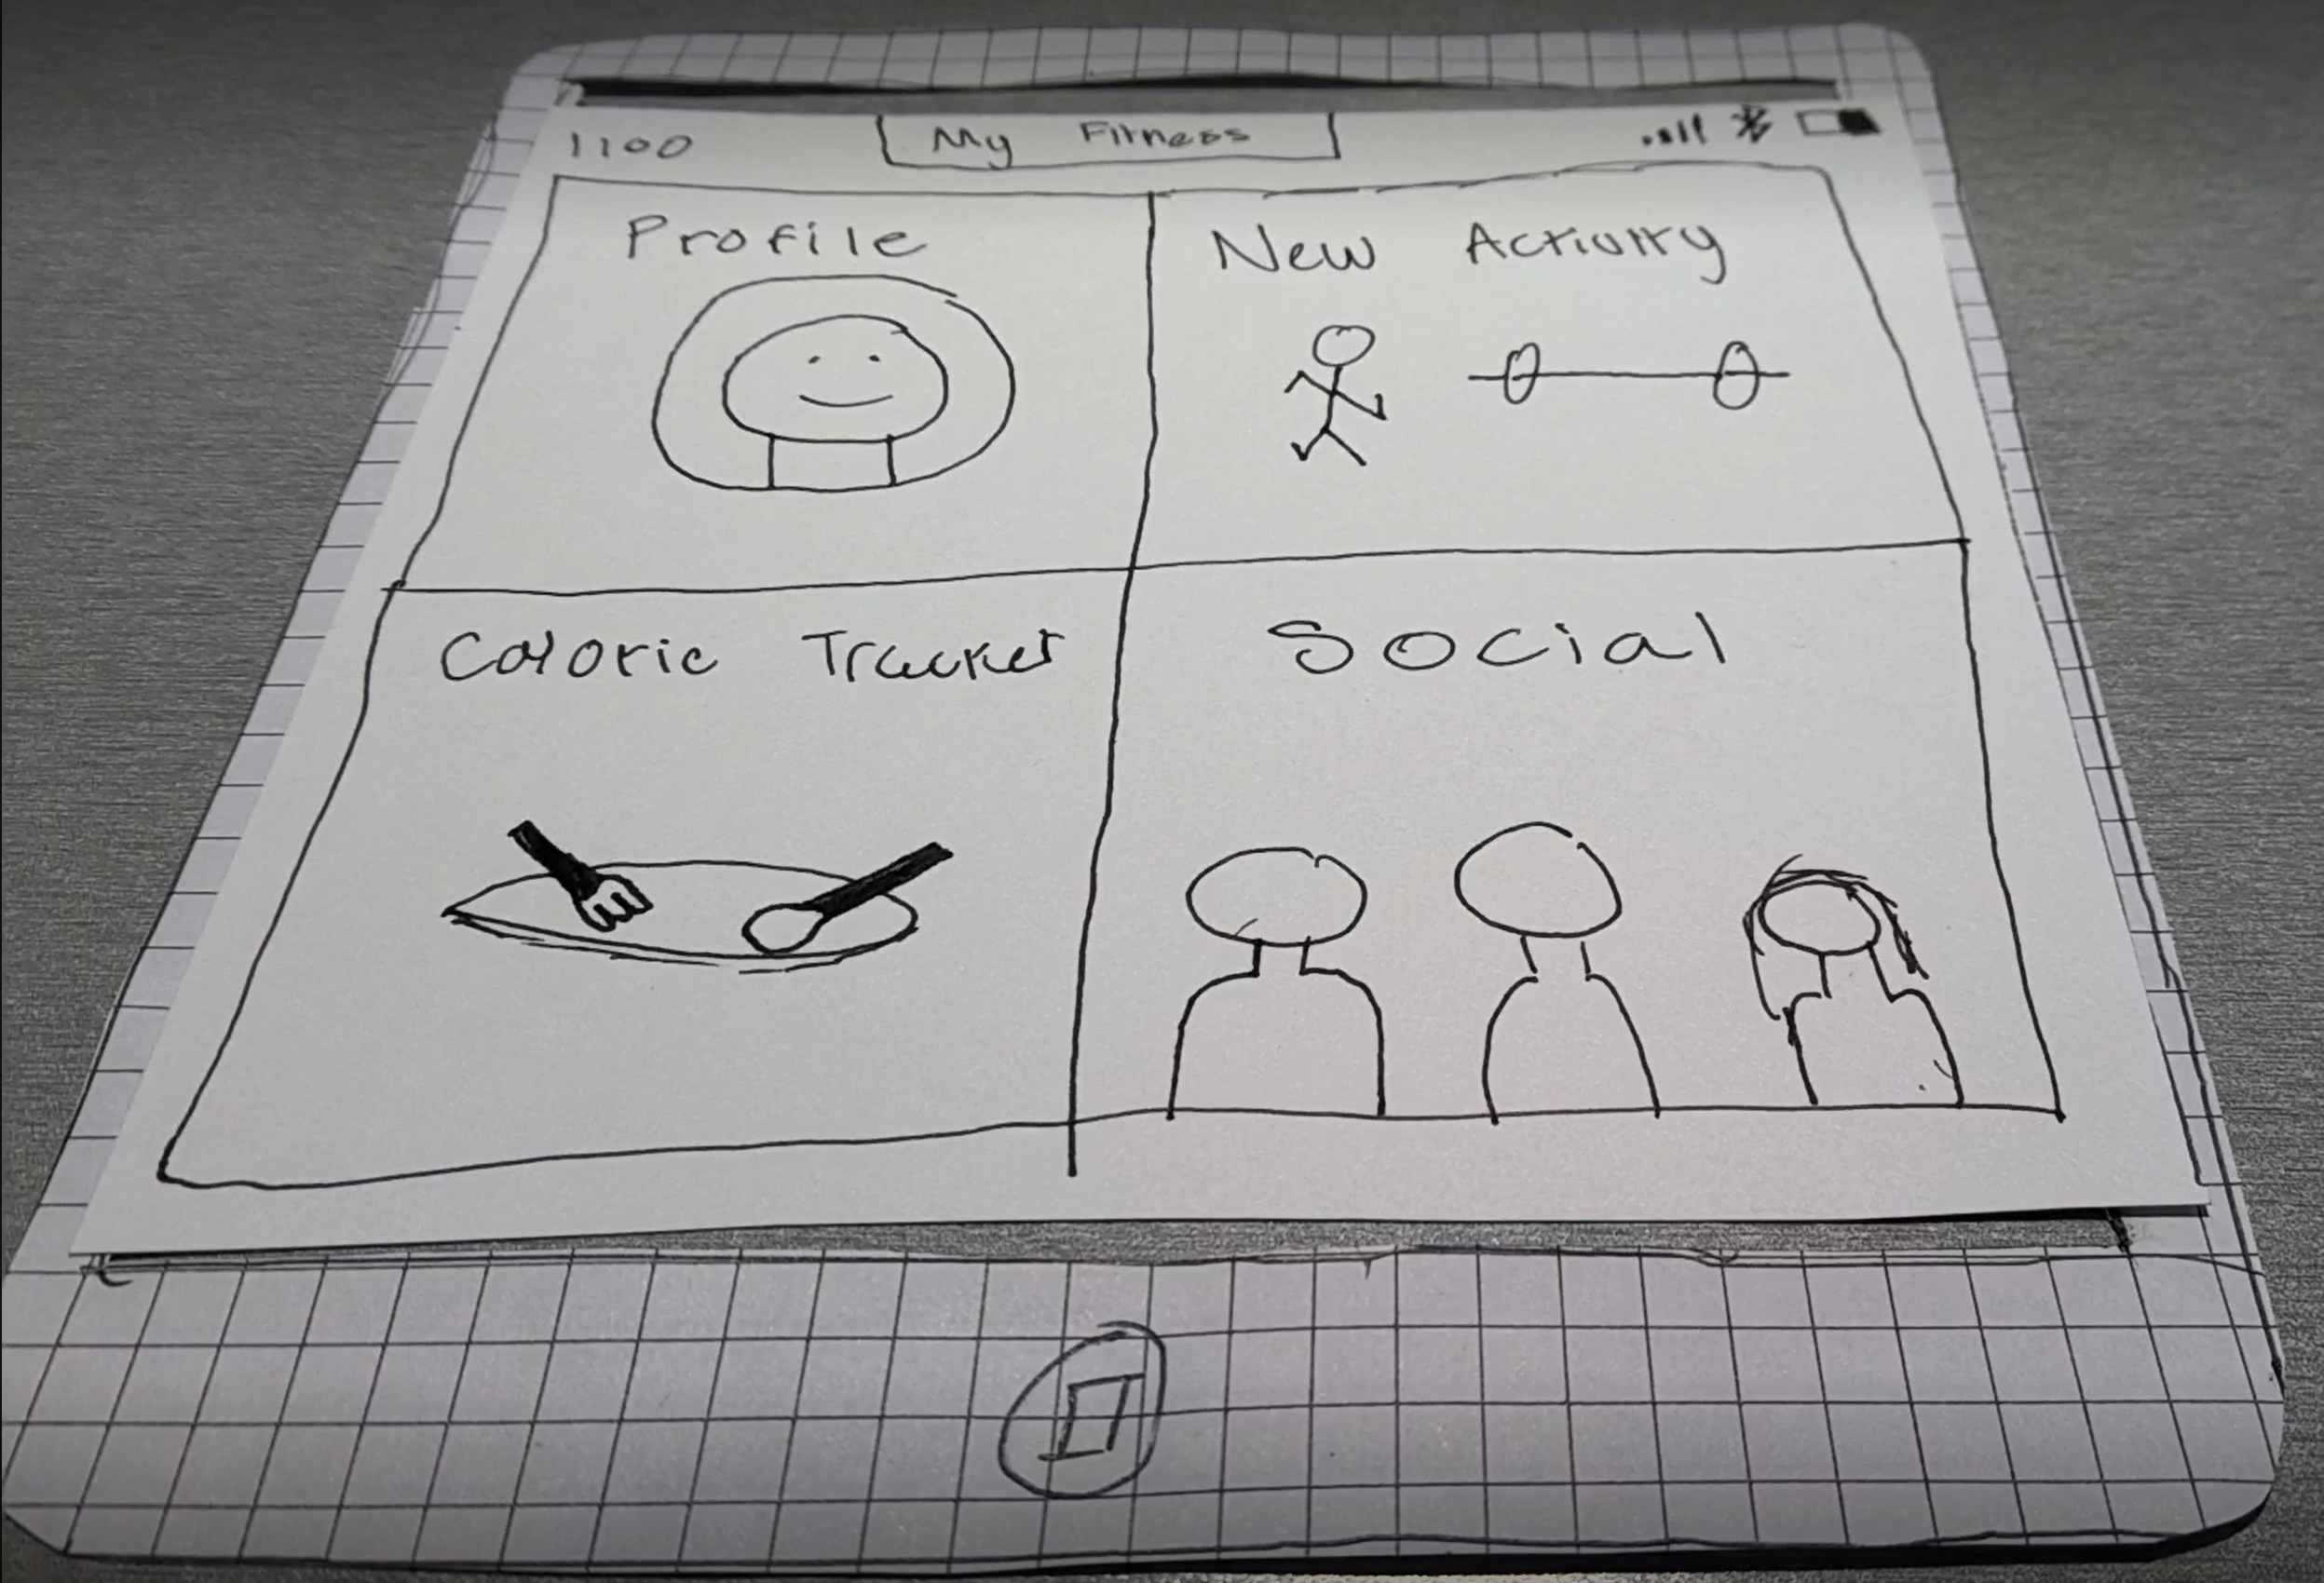 1100 My Fitness
Profile
New Activity
Caloric Tracker
Social